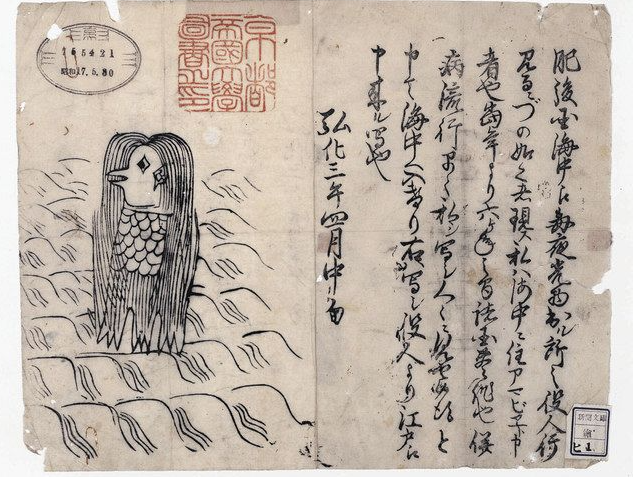 肥後国海中江毎夜光物出ル所之役人行
見るニづの如之者現ス私ハ海中ニ住アマビヱト申
者也当年より六ヶ年之間諸国豊作也併
病流行早々私ヲ写シ人々ニ見セ候得と
申て海中へ入けり右写シ役人より江戸江
申来ル写也
弘化三年四月中旬
京都
帝國大學
圖書之印
155421
昭和17.5.30
新聞文庫
繪
ヒ 1